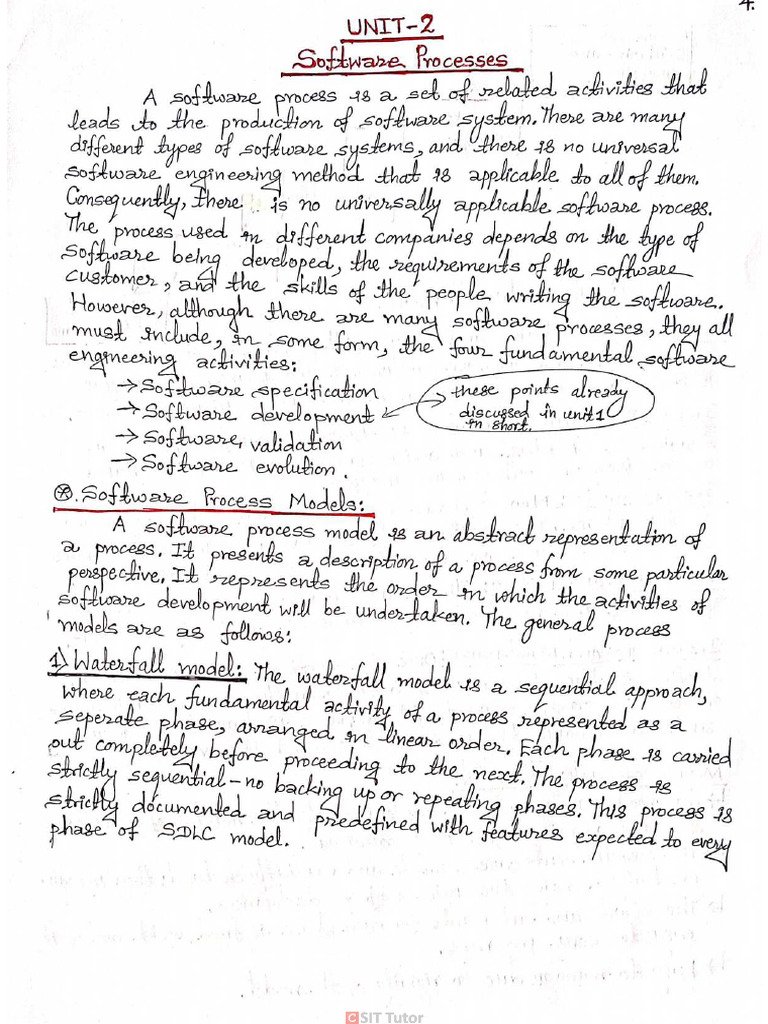 4.
UNIT-2
Software Processes
A software process is a set of related activities that
leads to the production of software system. There are many
different types of software systems, and there is no universal
software engineering method that is applicable to all of them.
Consequently, there is no universally applicable software process.
The process used in different companies depends on the type of
software being developed, the requirements of the software
customer, and the skills of the people writing the software.
However, although there are many software processes, they all
must include, in some form, the four fundamental software
engineering activities:
→ Software specification
→ Software development
→ Software validation
→ Software evolution.
these points already
discussed in unit 1
in short.
⊛. Software Process Models:
A software process model is an abstract representation of
a process. It presents a description of a process from some particular
perspective. It represents the order in which the activities of
software development will be undertaken. The general process
models are as follows:
1) Waterfall model: The waterfall model is a sequential approach,
where each fundamental activity of a process represented as a
seperate phase, arranged in linear order. Each phase is carried
out completely before proceeding to the next. The process is
strictly sequential - no backing up or repeating phases. This process is
strictly documented and predefined with features expected to every
phase of SDLC model.
CSIT Tutor